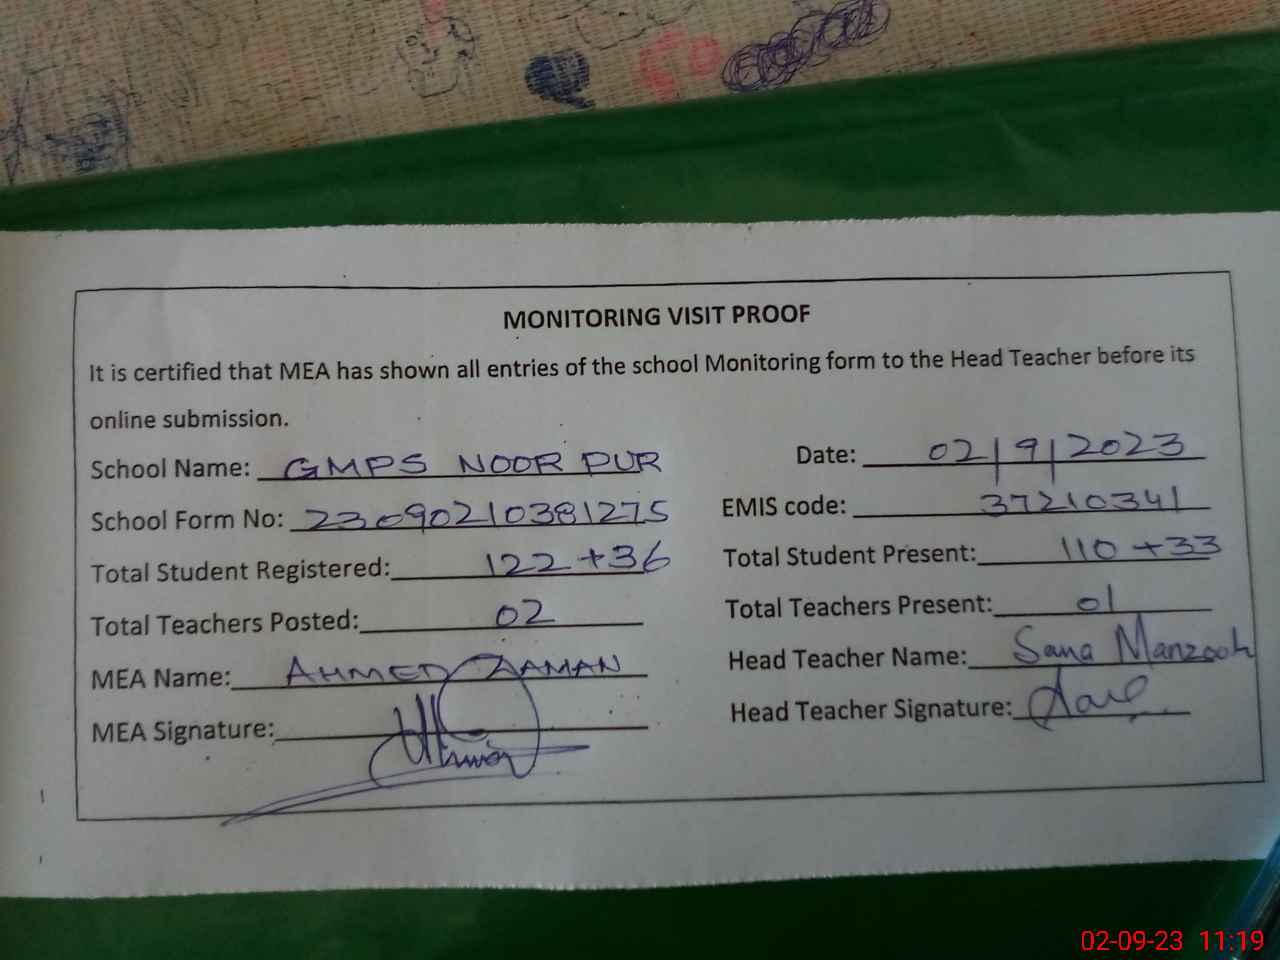 MONITORING VISIT PROOF
It is certified that MEA has shown all entries of the school Monitoring form to the Head Teacher before its
online submission.
School Name: GMPS NOOR PUR Date: 02/9/2023
School Form No: 23090210381275 EMIS code: 37210341
Total Student Registered: 122 +36 Total Student Present: 110 +33
Total Teachers Posted: 02 Total Teachers Present: 01
MEA Name: AHMED ZAMAN Head Teacher Name: Sana Manzoor
MEA Signature: Head Teacher Signature:
02-09-23 11:19